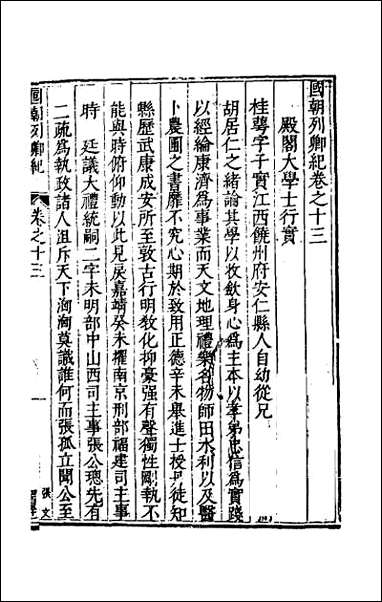 國朝列卿紀卷之十三
殿閣大學士行實
桂萼字子實江西饒州府安仁縣人自幼從兄
胡居仁之緒論其學以收斂身心為主本以孝弟忠信為實踐
以經綸康濟為事業而天文地理禮樂名物師田水利以及醫
卜農圃之書靡不究心期於致用正德辛未舉進士授丹徒知
縣歷武康成安所至敦古行明教化抑豪强有聲獨性剛執不
能與時俯仰動以此見戾嘉靖癸未擢南京刑部福建司主事
時 廷議大禮統嗣二字未明部中山西司主事張公璁先有
二疏為執政諸人沮斥天下洶洶莫識誰何而張孤立聞公至
國朝列卿紀
卷之十三
張文